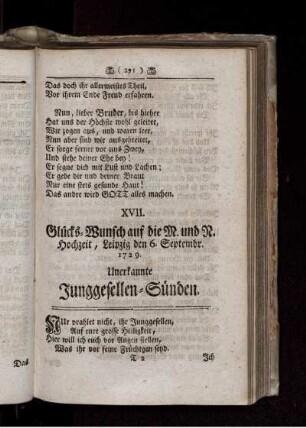 ( 291 )
Das doch ihr allermeistes Theil,
Vor ihrem Ende Freud erfahren.
Nun, lieber Bruder, bis hieher
Hat uns der Höchste wohl geleitet,
Wir zogen aus, und waren leer,
Nun aber sind wir ausgebreitet,
Er sorge ferner vor uns Zwey,
Und stehe deiner Ehe bey!
Er segne dich mit Lust und Lachen;
Er gebe dir und deiner Braut
Nur eine stets gesunde Haut!
Das andre wird GOTT alles machen.
XVII.
Glücks-Wunsch auf die M. und N.
Hochzeit, Leipzig den 6. Septembr.
1729.
Unerkannte
Junggesellen-Sünden.
Nur prahlet nicht, ihr Junggesellen,
Auf eure grosse Heiligkeit,
Hier will ich euch vor Augen stellen,
Was ihr vor feine Früchtgen seyd.
T 2
Ich
Das